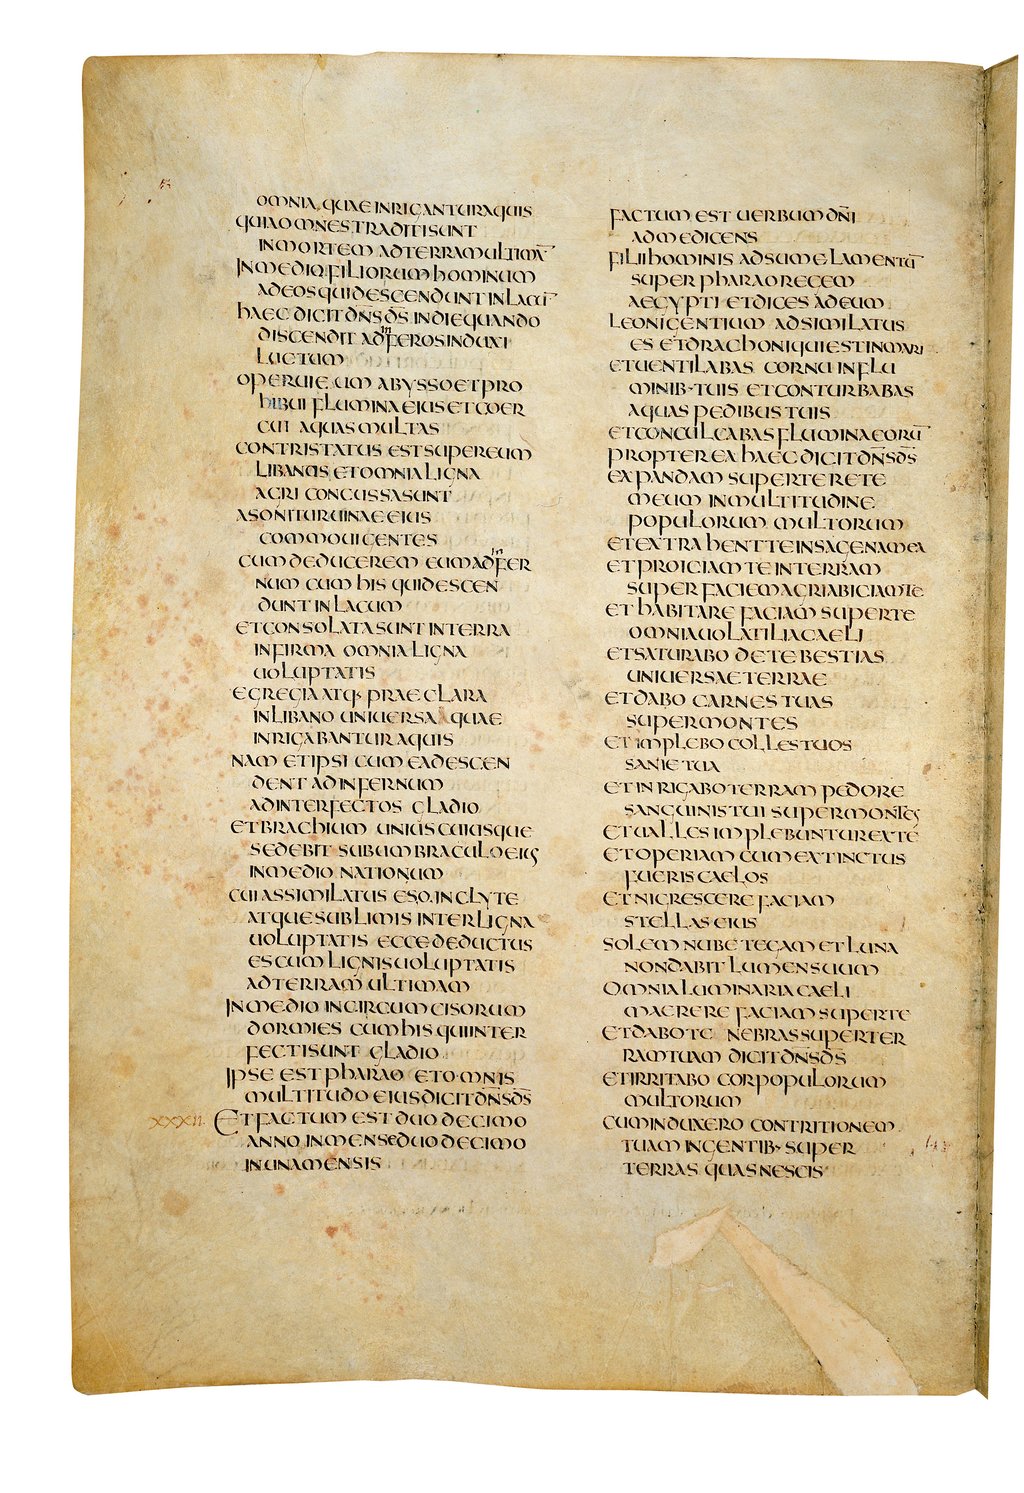 OMNIA QUAE INRIGANTUR AQUIS
QUIA OMNES TRADITI SUNT
IN MORTEM AD TERRAM ULTIMĀ
IN MEDIO FILIORUM HOMINUM
AD EOS QUI DESCENDUNT IN LACŪ
HAEC DICIT DN̄S D̄S IN DIE QUANDO
DISCENDIT AD INFEROS INDUXI
LUCTUM
OPERUI EUM ABYSSO ET PRO
HIBUI FLUMINA EIUS ET COER
CUI AQUAS MULTAS
CONTRISTATUS EST SUPER EUM
LIBANUS ET OMNIA LIGNA
AGRI CONCUSSA SUNT
A SONITU RUINAE EIUS
COMMOUI GENTES
CUM DEDUCEREM EUM AD INFER
NUM CUM HIS QUI DESCEN
DUNT IN LACUM
ET CONSOLATA SUNT IN TERRA
INFIRMA OMNIA LIGNA
UOLUPTATIS
EGREGIA ATQ· PRAECLARA
IN LIBANO UNIUERSA QUAE
INRIGABANTUR AQUIS
NAM ET IPSI CUM EA DESCEN
DENT AD INFERNUM
AD INTERFECTOS GLADIO
ET BRACHIUM UNIUSCUIUSQUE
SEDEBIT SUB UMBRACULO EIUS
IN MEDIO NATIONUM
CUI ASSIMILATUS ES O INCLYTE
ATQUE SUBLIMIS INTER LIGNA
UOLUPTATIS ECCE DEDUCTUS
ES CUM LIGNIS UOLUPTATIS
AD TERRAM ULTIMAM
IN MEDIO INCIRCUMCISORUM
DORMIES CUM HIS QUI INTER
FECTI SUNT GLADIO
IPSE EST PHARAO ET OMNIS
MULTITUDO EIUS DICIT DN̄S D̄S
XXXII. ET FACTUM EST DUODECIMO
ANNO IN MENSE DUODECIMO
IN UNA MENSIS
FACTUM EST UERBUM DN̄I
AD ME DICENS
FILI HOMINIS ADSUME LAMENTŪ
SUPER PHARAO REGEM
AEGYPTI ET DICES AD EUM
LEONI GENTIUM ADSIMILATUS
ES ET DRACHONI QUI EST IN MARI
ET UENTILABAS CORNU IN FLU
MINIB· TUIS ET CONTURBABAS
AQUAS PEDIBUS TUIS
ET CONCULCABAS FLUMINA EORŪ
PROPTEREA HAEC DICIT DN̄S D̄S
EXPANDAM SUPER TE RETE
MEUM IN MULTITUDINE
POPULORUM MULTORUM
ET EXTRAHENT TE IN SAGENA MEA
ET PROICIAM TE IN TERRAM
SUPER FACIEM AGRI ABICIAM TE
ET HABITARE FACIAM SUPER TE
OMNIA UOLATILIA CAELI
ET SATURABO DE TE BESTIAS
UNIUERSAE TERRAE
ET DABO CARNES TUAS
SUPER MONTES
ET IMPLEBO COLLES TUOS
SANIE TUA
ET INRIGABO TERRAM PEDORE
SANGUINIS TUI SUPER MONTES
ET UALLES IMPLEBUNTUR EX TE
ET OPERIAM CUM EXTINCTUS
FUERIS CAELOS
ET NIGRESCERE FACIAM
STELLAS EIUS
SOLEM NUBE TEGAM ET LUNA
NON DABIT LUMEN SUUM
OMNIA LUMINARIA CAELI
MAERERE FACIAM SUPER TE
ET DABO TENEBRAS SUPER TER
RAM TUAM DICIT DN̄S D̄S
ET IRRITABO COR POPULORUM
MULTORUM
CUM INDUXERO CONTRITIONEM
TUAM IN GENTIB· SUPER
TERRAS QUAS NESCIS